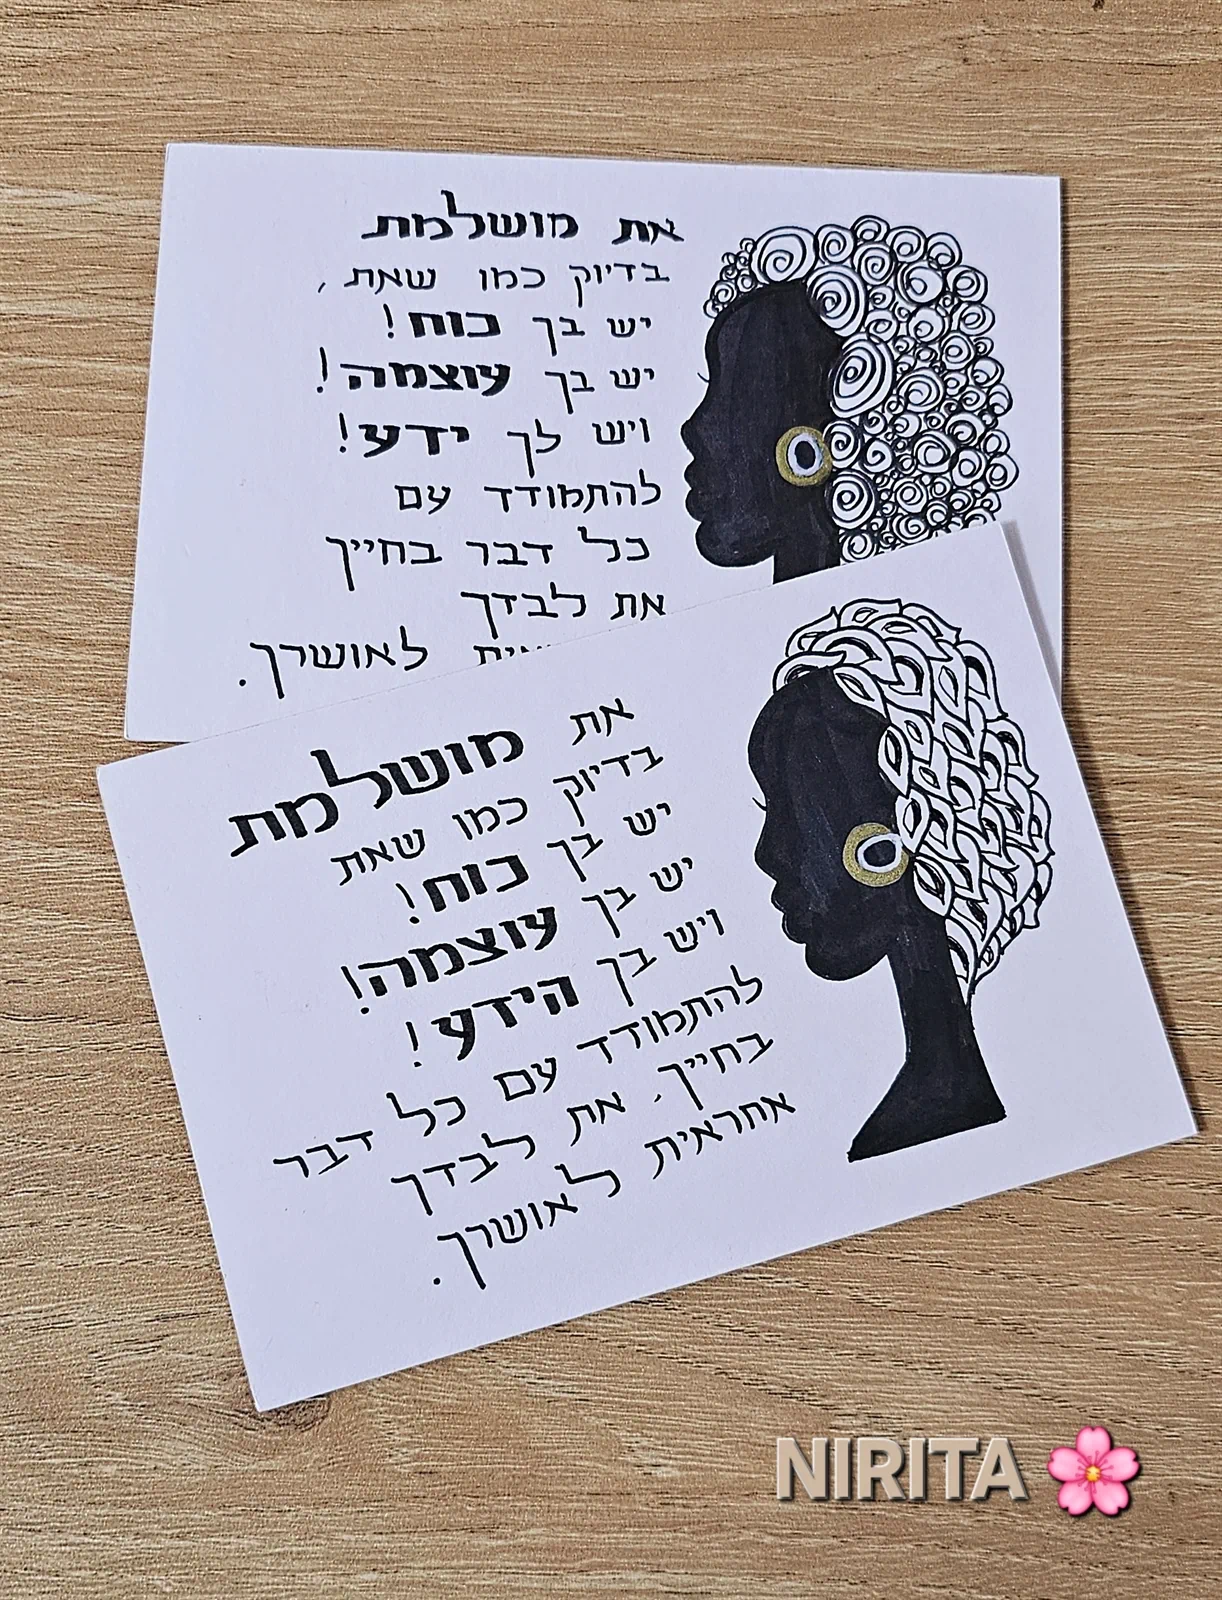 את מושלמת
בדיוק כמו שאת,
יש בך כוח!
יש בך עוצמה!
ויש לך ידע!
להתמודד עם
כל דבר בחייך
את לבדך
לאושרך.
את
מושלמת
בדיוק כמו שאת
יש בך כוח!
יש בך עוצמה!
ויש בך הידע!
להתמודד עם כל דבר
בחייך, את לבדך
אחראית לאושרך.
NIRITA